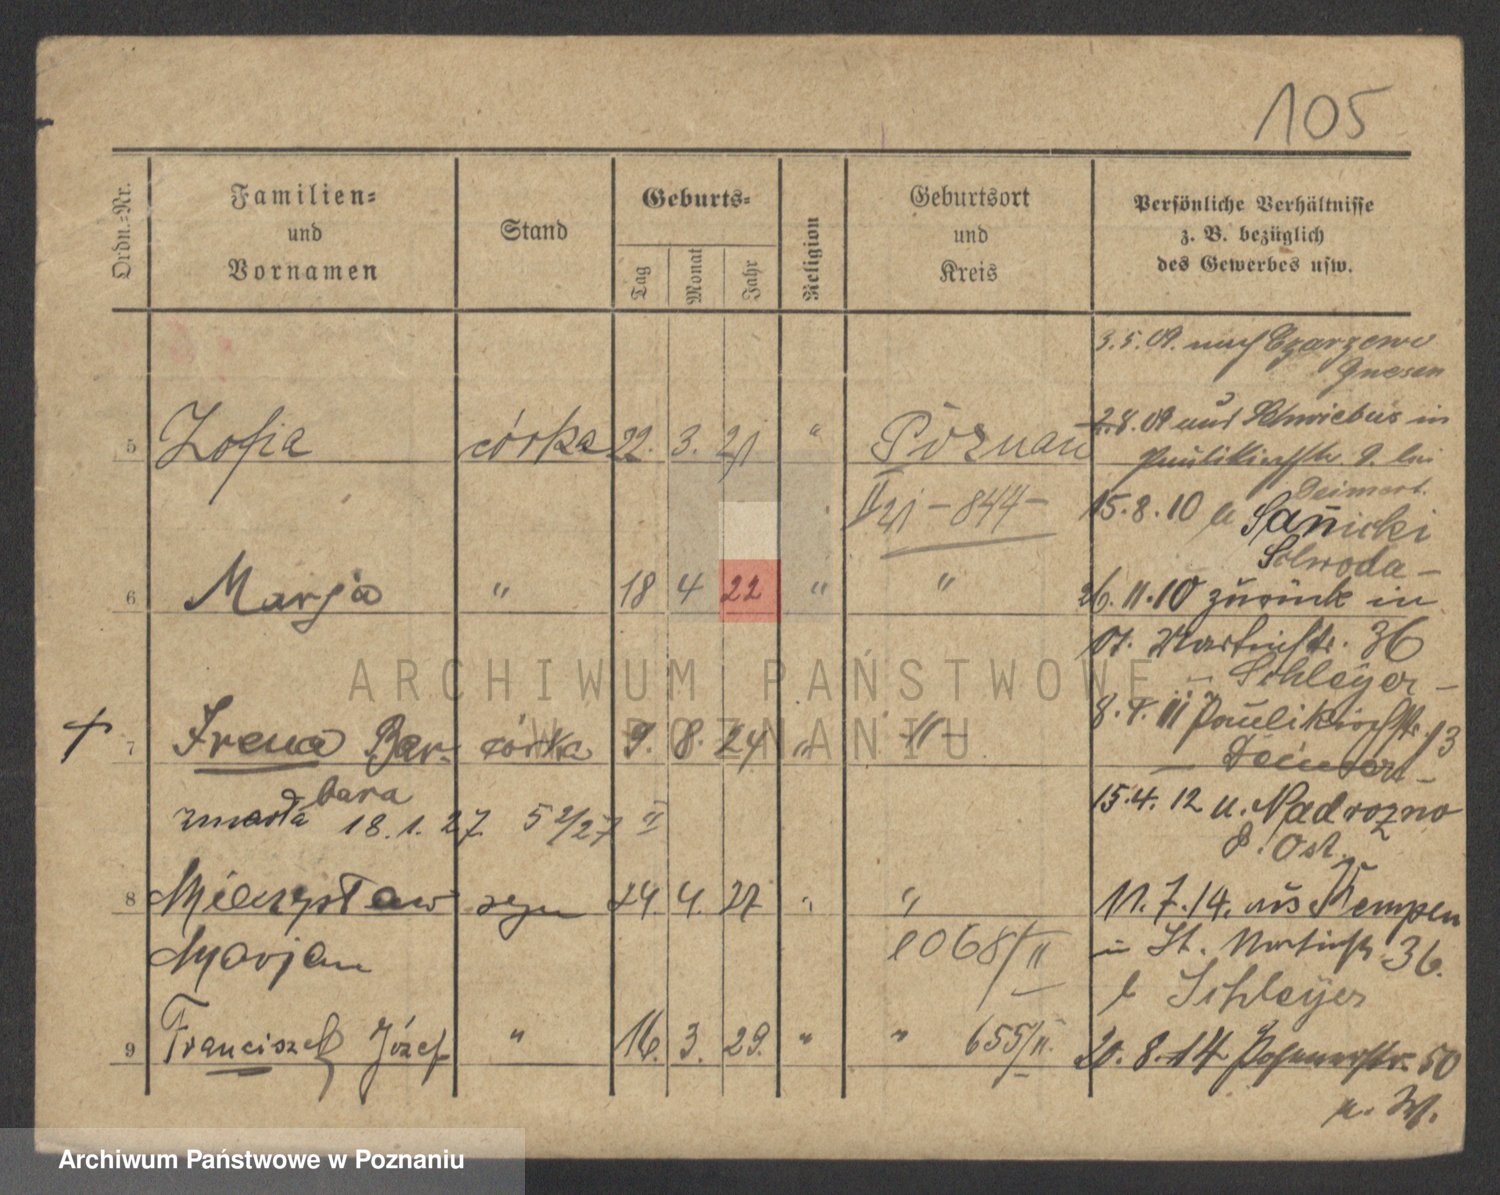 105
Ordn.-Nr.
Familien-
und
Vornamen
Stand
Geburts-
Tag
Monat
Jahr
Religion
Geburtsort
und
Kreis
Persönliche Verhältnisse
z. B. bezüglich
des Gewerbes usw.
3.5.09. nach Czarzewo
Gnesen
5 Zofia córka 22. 3. 21 " Poznań
II 21 - 844 -
2.8.09 aus Schwiebus in
Paulikirchstr. 9. bei
15.8.10 Sanicki
6 Marja " 18 4 22 " "
26.11.10 zurück in
St. Martinstr. 36
- Schleyer -
7 Irena Bar- córka 9. 8. 24 " -"-
bara
zmarła 18.1.27 52/27 II
Paulikirchstr. 13
15.4.12 n. Nadrozno
8 Mieczysław syn 24. 4. 27 " "
Marjan
1068/II
11.7.14. aus Kempen
in St. Martinstr. 36.
b Schleyer
9 Franciszek Józef " 16. 3. 29. " " 655/II.
20.8.14 Posenerstr. 50
ARCHIWUM PAŃSTWOWE
W POZNANIU
Archiwum Państwowe w Poznaniu